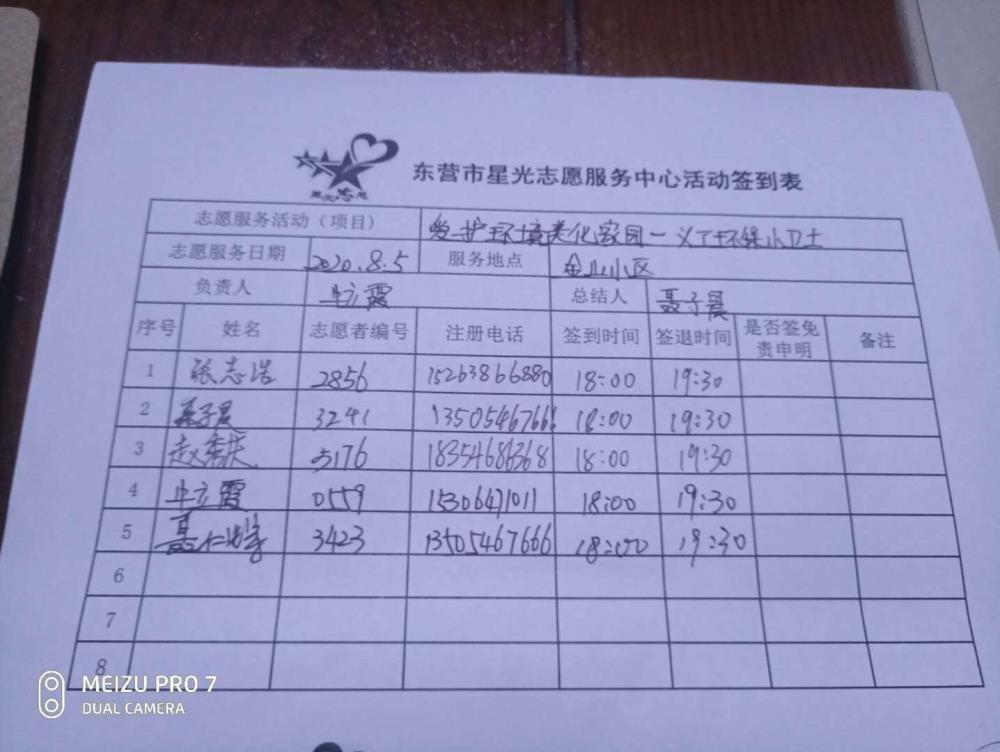 东营市星光志愿服务中心活动签到表
志愿服务活动（项目） 爱护环境美化家园一义工环保小卫士
志愿服务日期 2020.8.5 服务地点 金山小区
负责人 牛立霞 总结人 聂子晨
序号 姓名 志愿者编号 注册电话 签到时间 签退时间 是否签免责申明 备注
1 张志浩 2856 15263866880 18:00 19:30
2 聂子晨 3241 13505467666 18:00 19:30
3 赵 3176 18354686368 18:00 19:30
4 牛立霞 0559 15306471011 18:00 19:30
5 聂仁 3423 13505467666 18:00 19:30
6
7
8
MEIZU PRO 7
DUAL CAMERA